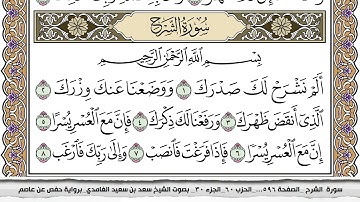 سُورَةُ الشَّرْحِ
بِسْمِ اللَّهِ الرَّحْمَٰنِ الرَّحِيمِ
أَلَمْ نَشْرَحْ لَكَ صَدْرَكَ ١ وَوَضَعْنَا عَنكَ وِزْرَكَ ٢
الَّذِي أَنقَضَ ظَهْرَكَ ٣ وَرَفَعْنَا لَكَ ذِكْرَكَ ٤ فَإِنَّ مَعَ الْعُسْرِ يُسْرًا ٥
إِنَّ مَعَ الْعُسْرِ يُسْرًا ٦ فَإِذَا فَرَغْتَ فَانصَبْ ٧ وَإِلَىٰ رَبِّكَ فَارْغَب ٨
سورة الشرح _الصفحة ٥٩٦... الحزب ٦٠_الجزء ٣٠_ بصوت الشيخ سعد بن سعيد الغامدي برواية حفص عن عاصم